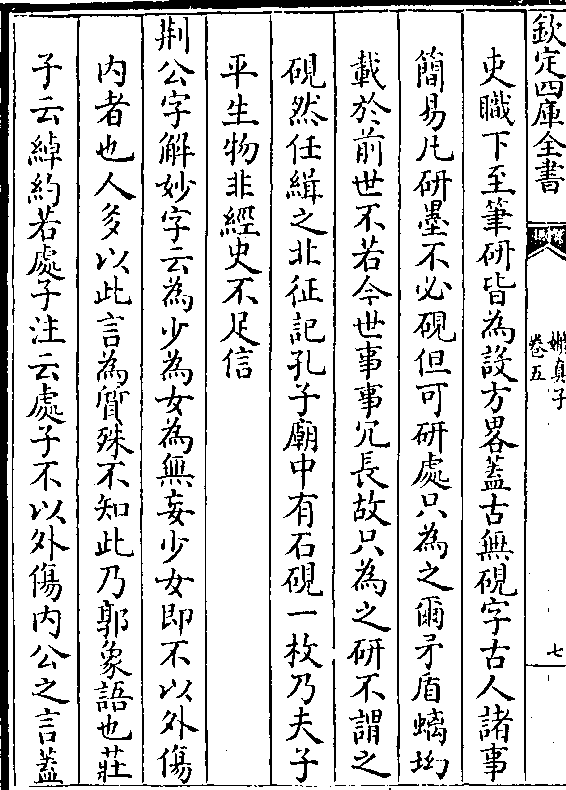 欽定四庫全書
嬾真子
卷五
七
吏職下至筆研皆為設方畧蓋古無硯字古人諸事
簡易凡研墨不必硯但可研處只為之爾矛盾螭坳
載於前世不若今世事事冗長故只為之研不謂之
硯然任緝之北征記孔子廟中有石硯一枚乃夫子
平生物非經史不足信
荆公字解妙字云為少為女為無妄少女即不以外傷
内者也人多以此言為質殊不知此乃郭象語也莊
子云綽約若處子注云處子不以外傷内公之言蓋